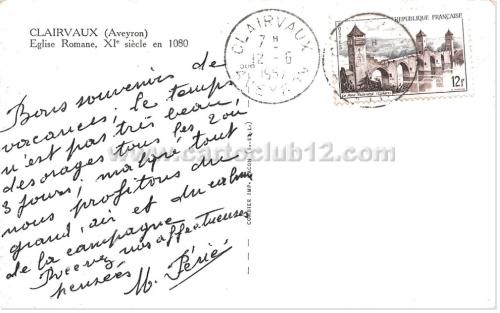 CLAIRVAUX (Aveyron)
Eglise Romane, XIe siècle en 1080
CLAIRVAUX
7 H
12-6
1957
AVEYRON
REPUBLIQUE FRANÇAISE
12F
Le Pont Valentré (Cahors)
Bons souvenirs de
vacances; le temps
n'est pas très beau,
des orages tous les 2 ou
3 jours; malgré tout
nous profitons du
grand air et du calme
de la campagne
Recevez nos affectueuses
pensées
M. Périé
www.cartoclub12.com
COMBIER IMP. MACON